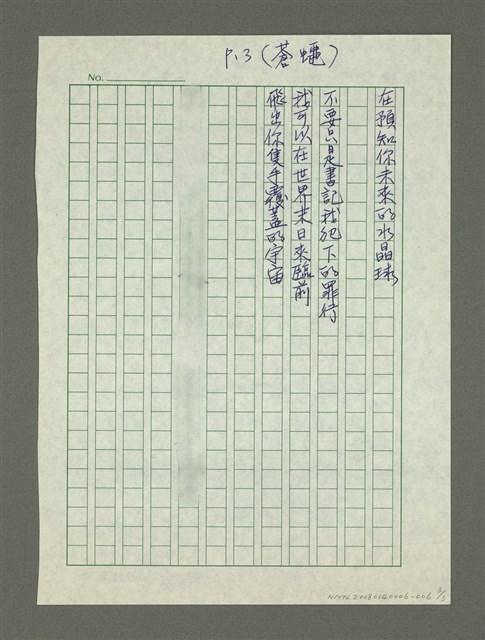 P.3（蒼蠅）
No.
在預知你未來的水晶球
不要只是書記我犯下的罪行
我可以在世界末日來臨前
飛出你隻手覆蓋的宇宙
NMTL20080140006-006 3/3